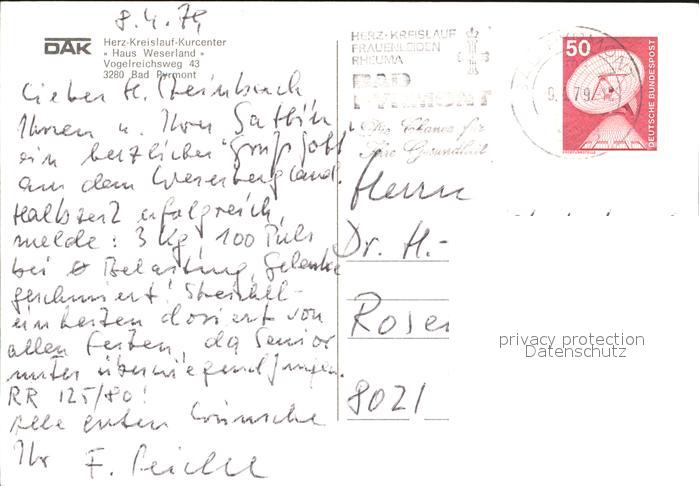 8.4.79
DAK Herz-Kreislauf-Kurcenter
« Haus Weserland »
Vogelreichsweg 43
3280 Bad Pyrmont
Lieber H. Steinbach
Ihnen u. Ihrer Gattin
ein herzliches "Grüß Gott"
aus dem Weserbergland.
Halbzeit erfolgreich,
melde: 3 Kg, 100 Puls
bei Belastung, Gelenke
geschmiert!
einheiten dosiert von
allen Seiten, da Senior
unter überwiegend Jungen.
RR 125/80!
Alle guten Wünsche
Ihr
HERZ-KREISLAUF
FRAUENLEIDEN
RHEUMA
BAD
PYRMONT
Die Chance für
Ihre Gesundheit
50
DEUTSCHE BUNDESPOST
Herrn
Dr. H.-
Rosen
8021
privacy protection
Datenschutz